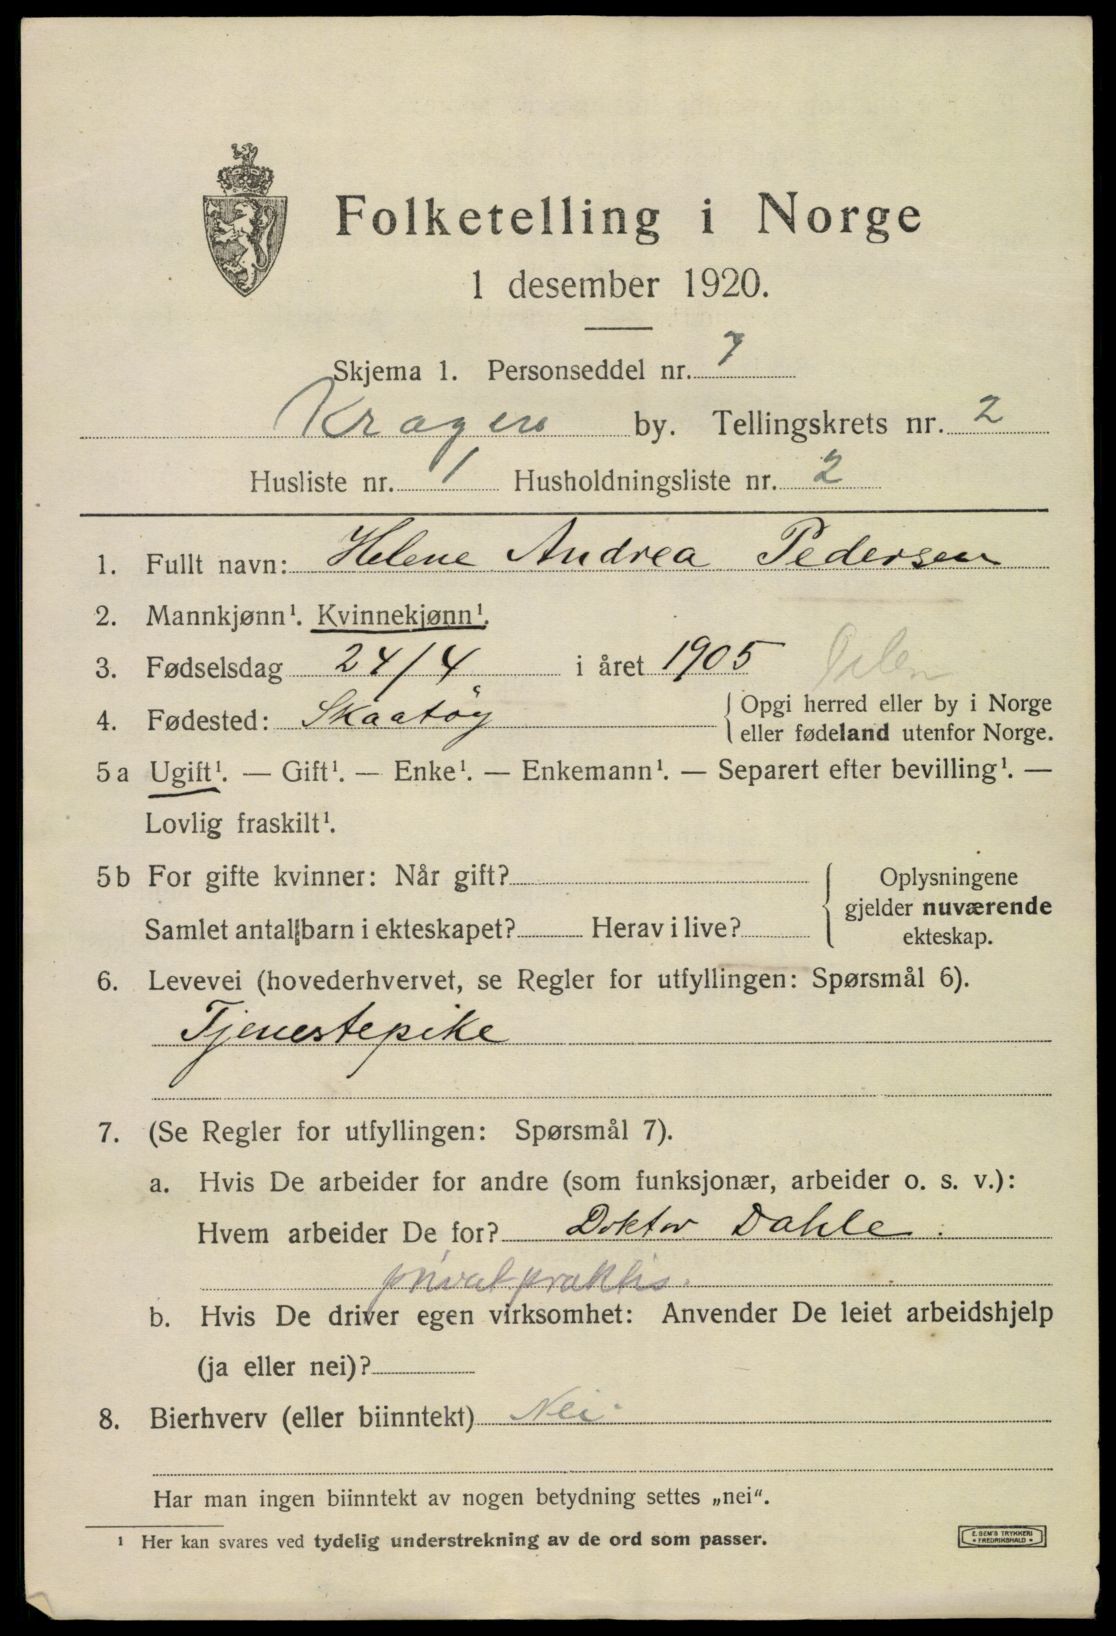 Folketelling i Norge
1 desember 1920.
Skjema 1. Personseddel nr. 7
Kragerø by. Tellingskrets nr. 2
Husliste nr. 1 Husholdningsliste nr. 2
1. Fullt navn: Helene Andrea Pedersen
2. Mannkjønn¹. Kvinnekjønn¹.
3. Fødselsdag 24/4 i året 1905
4. Fødested: Skaatöy
Opgi herred eller by i Norge
eller fødeland utenfor Norge.
5a Ugift¹. — Gift¹. — Enke¹. — Enkemann¹. — Separert efter bevilling¹. —
Lovlig fraskilt¹.
5b For gifte kvinner: Når gift?
Samlet antal barn i ekteskapet? Herav i live?
Oplysningene
gjelder nuværende
ekteskap.
6. Levevei (hovederhvervet, se Regler for utfyllingen: Spørsmål 6).
Tjenestepike
7. (Se Regler for utfyllingen: Spørsmål 7).
a. Hvis De arbeider for andre (som funksjonær, arbeider o. s. v.):
Hvem arbeider De for? Doktor Dahle.
privatpraktis.
b. Hvis De driver egen virksomhet: Anvender De leiet arbeidshjelp
(ja eller nei)?
8. Bierhverv (eller biinntekt) Nei.
Har man ingen biinntekt av nogen betydning settes „nei“.
¹ Her kan svares ved tydelig understrekning av de ord som passer.
E. SEM'S TRYKKERI
FREDRIKSHALD